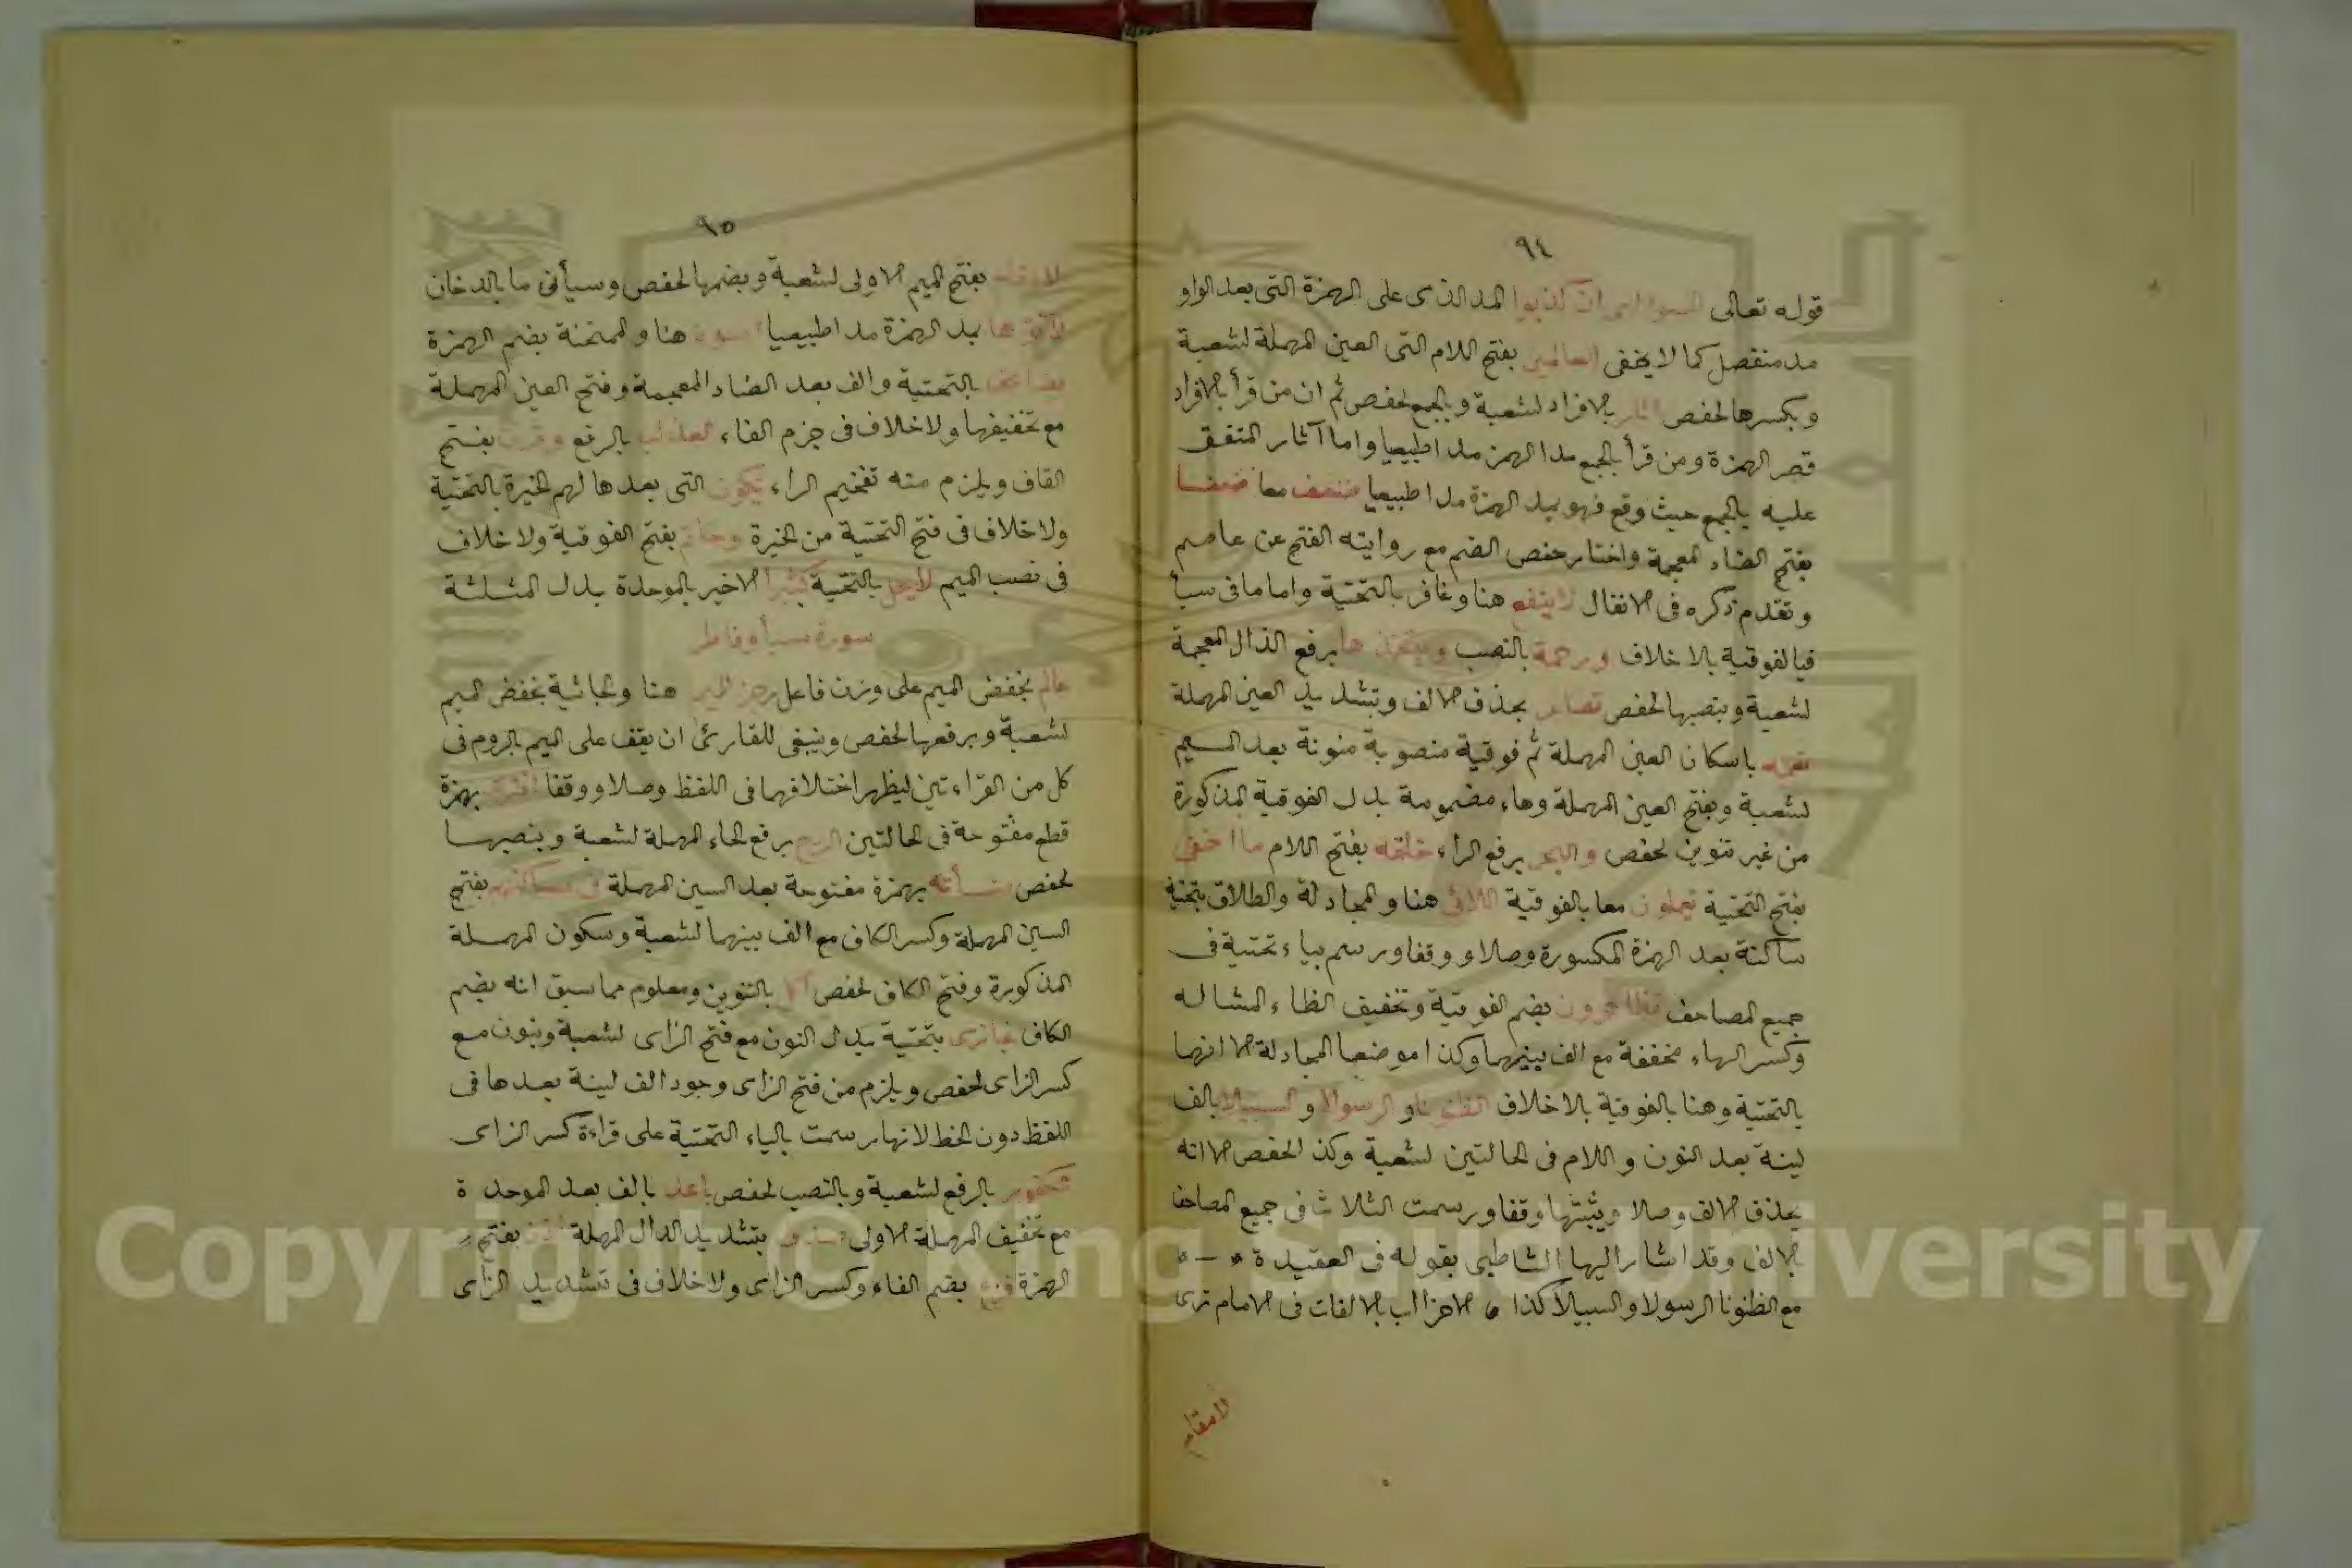 ٩٤
قوله تعالى السوأى ان كذبوا المد الذى على الهمزة التى بعد الواو
مد منفصل كما لا يخفى العالمين بفتح اللام التى العين المهملة لشعبة
وبكسرها لحفص اثار بالافراد لشعبة وبالجمع لحفص ثم ان من قرأ بالافراد
قصر الهمزة ومن قرأ بالجمع مد الهمز مدا طبيعيا واما آثار المتفق
عليه بالجمع حيث وقع فهو بمد الهمزة مدا طبيعيا ضعف معا ضعفا
بفتح الضاد المعجمة واختار حفص الضم مع روايته الفتح عن عاصم
وتقدم ذكره فى الانفال لا ينفع هنا وغافر بالتحتية واما ما فى سبأ
فبالفوقية بلا خلاف ورحمة بالنصب ويتخذها برفع الذال المعجمة
لشعبة وبنصبها لحفص تصاعر بحذف الالف وتشديد العين المهملة
نعمة باسكان العين المهملة ثم فوقية منصوبة منونة بعد الميم
لشعبة وبفتح العين المهملة وهاء مضمومة بدل الفوقية المذكورة
من غير تنوين لحفص والبحر برفع الراء خلقه بفتح اللام ما اخفى
بفتح التحتية تعملون معا بالفوقية اللائى هنا والمجادلة والطلاق بتحتية
ساكنة بعد الهمزة المكسورة وصلا ووقفا ورسم بياء تحتية فى
جميع المصاحف تظاهرون بضم الفوقية وتخفيف الظاء المشالة
وكسر الهاء مخففة مع الف بينهما وكذا موضعا المجادلة الا انهما
بالتحتية وهنا بالفوقية بلا خلاف الظنونا و الرسولا و السبيلا بالف
لينة بعد النون واللام فى الحالتين لشعبة وكذ الحفص الا انه
يحذف الالف وصلا ويثبتها وقفا ورسمت الثلاث فى جميع المصاحف
بالالف وقد اشار اليها الشاطبى بقوله فى العقيدة
مع الظنونا الرسولا والسبيلا كذا الاحزاب بالالفات فى الامام ترى
لا مقام
٩٥
لا مقام بفتح الميم الاولى لشعبة وبضمها لحفص وسيأتى ما بالدخان
لآتوها بمد الهمزة مدا طبيعيا اسوة هنا والممتحنة بضم الهمزة
يضاعف بالتحتية والف بعد الضاد المعجمة وفتح العين المهملة
مع تخفيفها ولا خلاف فى جزم الفاء العذاب بالرفع وقرن بفتح
القاف ويلزم منه تفخيم الراء يكون التى بعدها لهم الخيرة بالتحتية
ولا خلاف فى فتح التحتية من الخيرة وخاتم بفتح الفوقية ولا خلاف
فى نصب الميم لا يحل بالتحتية كثيرا الاخير بالموحدة بدل المثلثة
سورة سبأ وفاطر
عالم بخفض الميم على وزن فاعل رجز اليم هنا والجاثية بخفض الميم
لشعبة وبرفعها لحفص وينبغى للقارئ ان يقف على الميم بالروم فى
كل من القراءتين ليظهر اختلافهما فى اللفظ وصلا ووقفا افترى بهمزة
قطع مفتوحة فى الحالتين الريح برفع الحاء المهملة لشعبة وبنصبها
لحفص منسأته بهمزة مفتوحة بعد السين المهملة فى مساكنهم بفتح
السين المهملة وكسر الكاف مع الف بينهما لشعبة وسكون المهملة
المذكورة وفتح الكاف لحفص أكل بالتنوين ومعلوم مما سبق انه بضم
الكاف يجازى بتحتية بدل النون مع فتح الزاى لشعبة وبنون مع
كسر الزاى لحفص ويلزم من فتح الزاى وجود الف لينة بعدها فى
اللفظ دون الخط لانها رسمت بالياء التحتية على قراءة كسر الزاى
الكفور بالرفع لشعبة وبالنصب لحفص باعد بالف بعد الموحدة
مع تخفيف المهملة الاولى صدق بتشديد الدال المهملة اذن بفتح
الهمزة فزع بضم الفاء وكسر الزاى ولا خلاف فى تشديد الزاى
Copyright © King Saud University